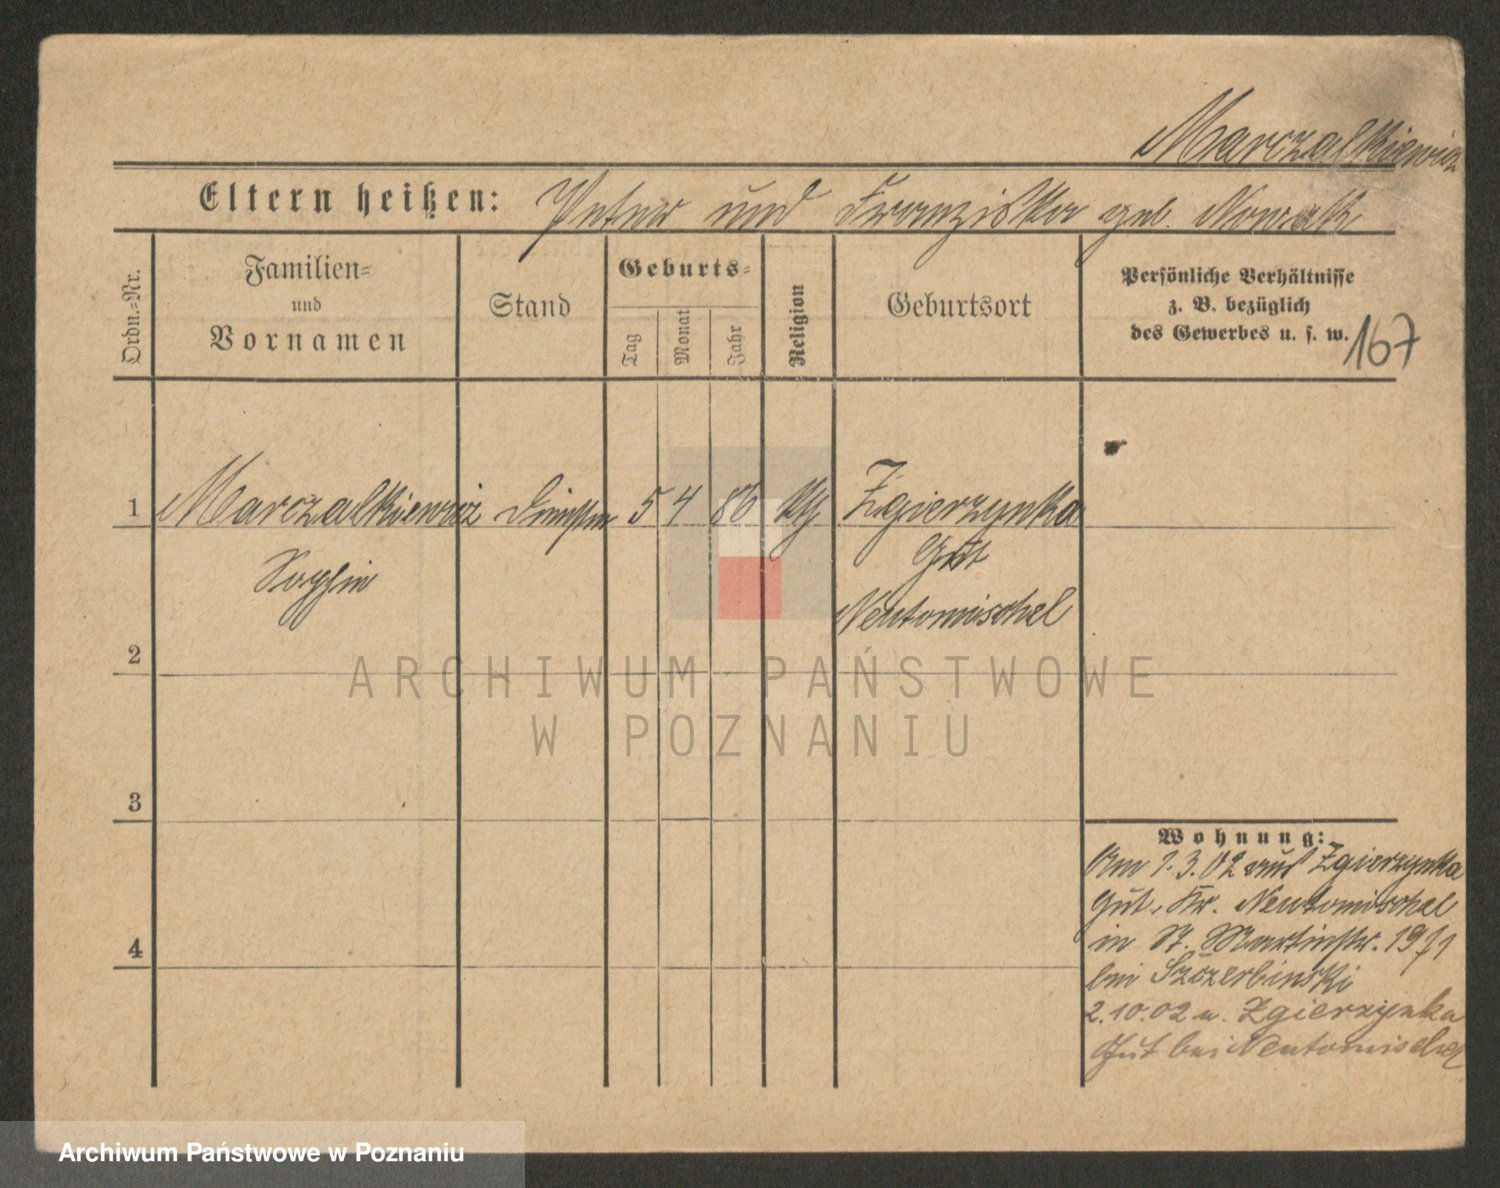 Marczalkiewicz
Eltern heißen: Peter und Franziska geb. Nowak
Ordn.-Nr.
Familien-
und
Vornamen
Stand
Geburts-
Tag
Monat
Jahr
Religion
Geburtsort
Persönliche Verhältnisse
z. B. bezüglich
des Gewerbes u. s. w.
167
1 Marczalkiewicz 5 4 86 Zgierzynka
Sophie Gut
Neutomischel
2
3
4
Wohnung:
Am 1.3.02 aus Zgierzynka
Gut, Kr. Neutomischel
in St. Martinstr.
bei Szczerbinski
2.10.02 n. Zgierzynka
Gut bei Neutomischel
ARCHIWUM PAŃSTWOWE
W POZNANIU
Archiwum Państwowe w Poznaniu